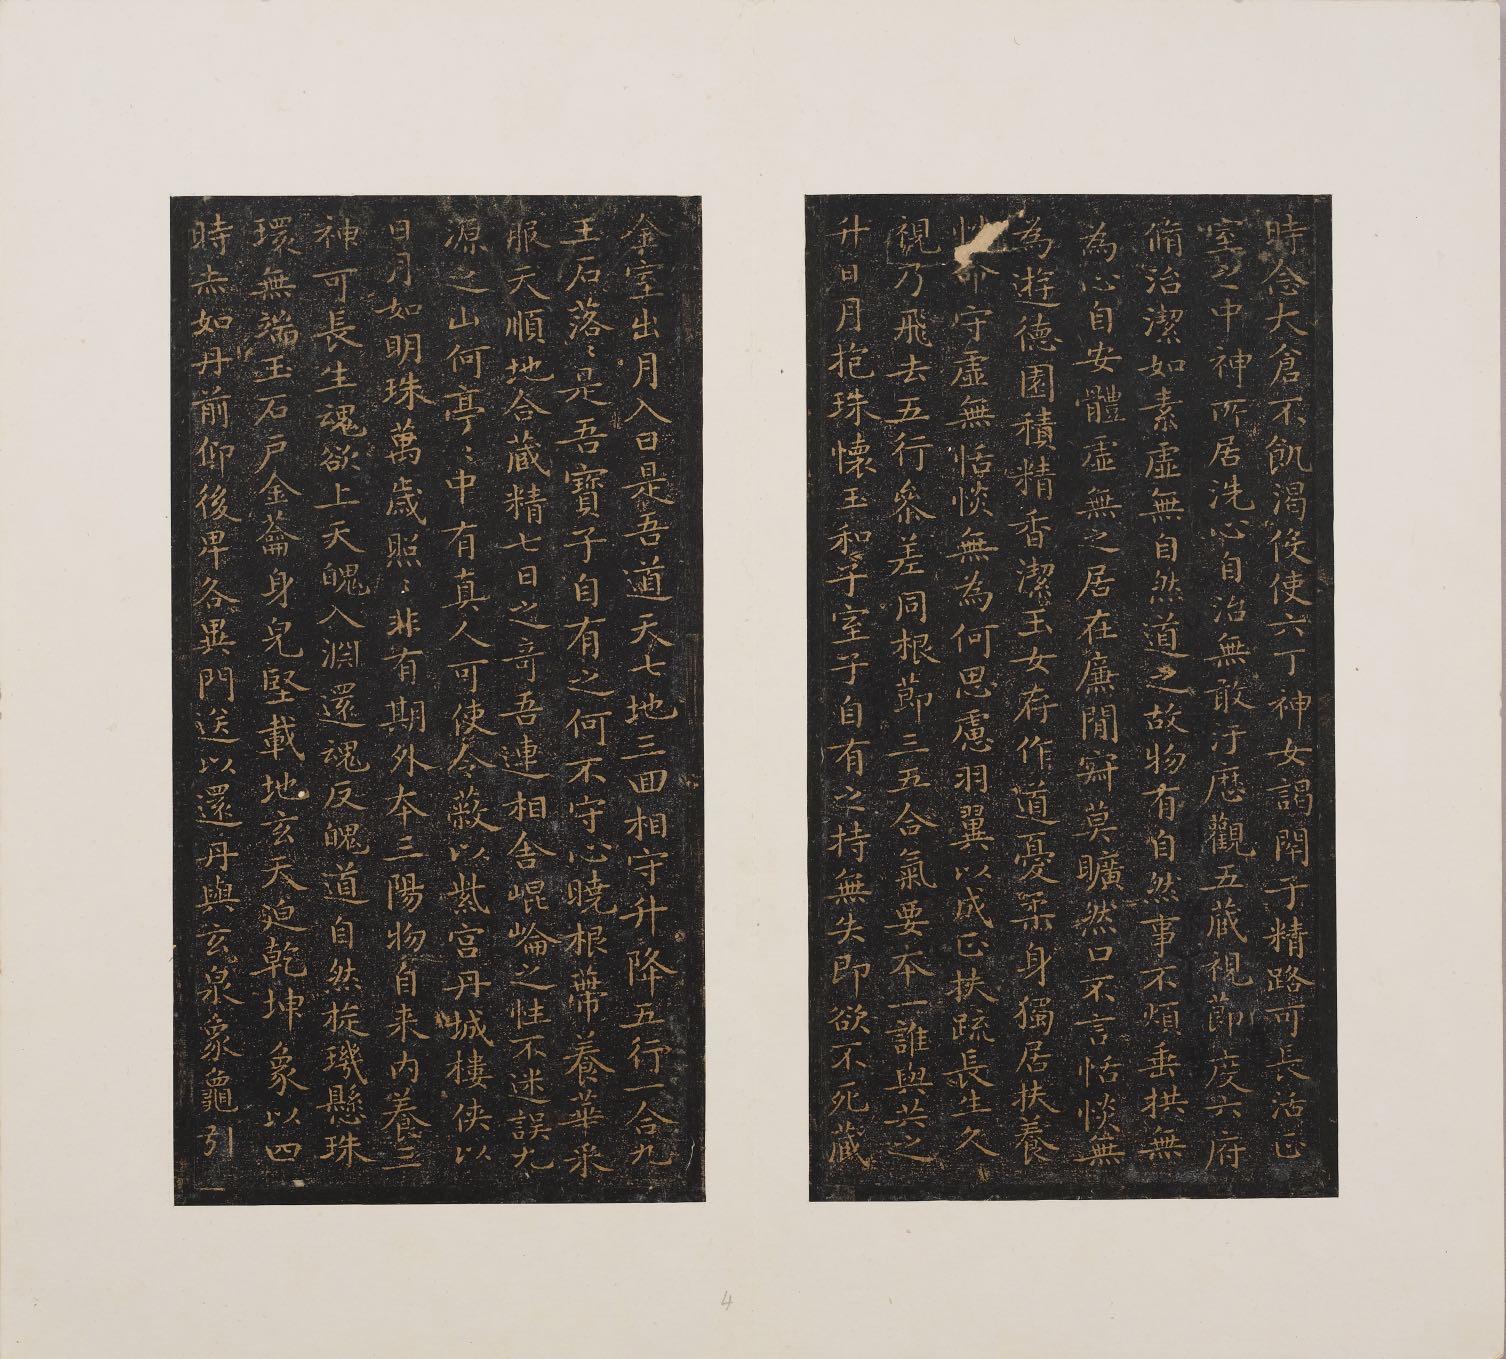 時念大倉不飢渴伇使六丁神女謁閇子精路可長活正
室之中神所居洗心自治無敢汙歷觀五藏視節度六府
脩治潔如素虛無自然道之故物有自然事不煩垂拱無
為心自安體虛無之居在廉閒寂莫曠然口不言恬惔無
為遊德園積精香潔玉女存作道憂柔身獨居扶養
性命守虛無恬惔無為何思慮羽翼以成正扶疏長生久
視乃飛去五行參差同根節三五合氣要本一誰與共之
升日月抱珠懷玉和子室子自有之持無失即欲不死藏
金室出月入日是吾道天七地三回相守升降五行一合九
玉石落〻是吾寶子自有之何不守心曉根蔕養華采
服天順地合藏精七日之奇吾連相舍崐崘之性不迷誤九
源之山何亭〻中有真人可使令蔽以紫宮丹城樓俠以
日月如明珠萬歲照〻非有期外本三陽物自来內養三
神可長生魂欲上天魄入淵還魂反魄道自然旋璣懸珠
環無端玉石戶金籥身皃堅載地玄天迫乾坤象以四
時赤如丹前仰後卑各異門送以還丹與玄泉象龜引
4